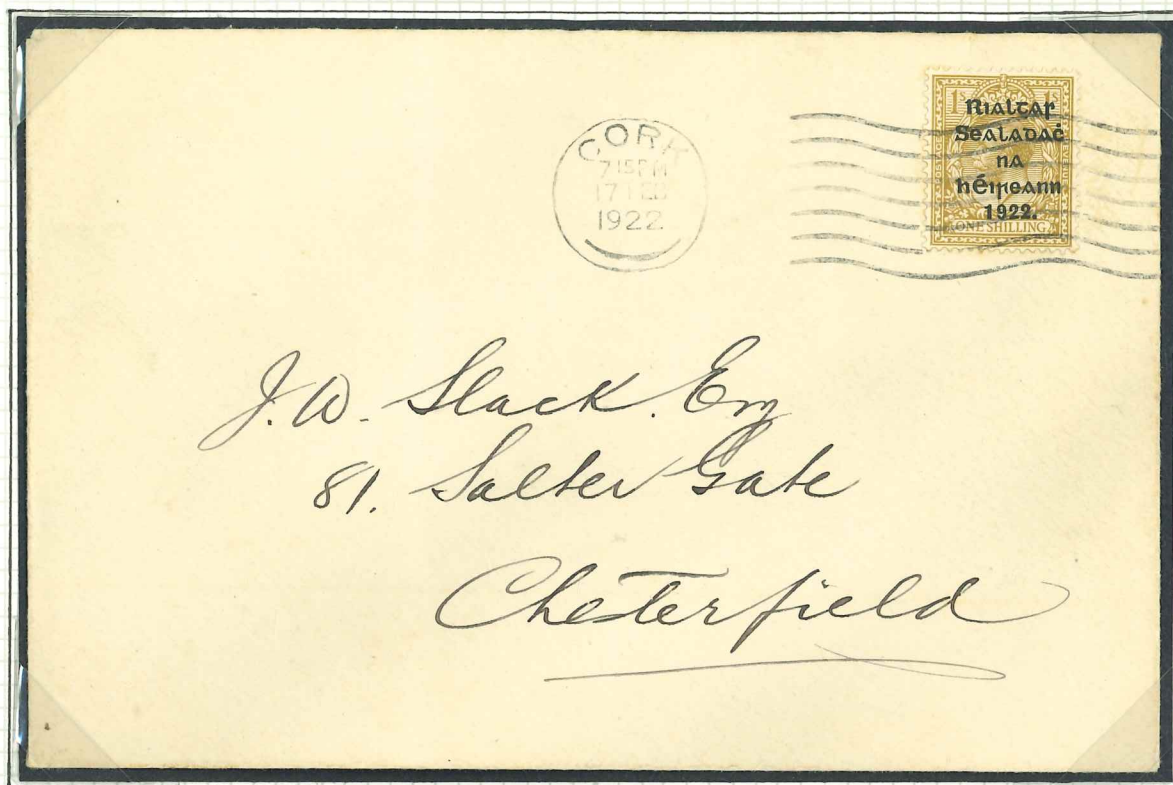 CORK
7 15 PM
17 FEB
1922
1S 1S
Rialtas
Sealadaċ
na
hÉireann
1922.
ONE SHILLING
J. W. Slack. Esq
81. Salter Gate
Chesterfield